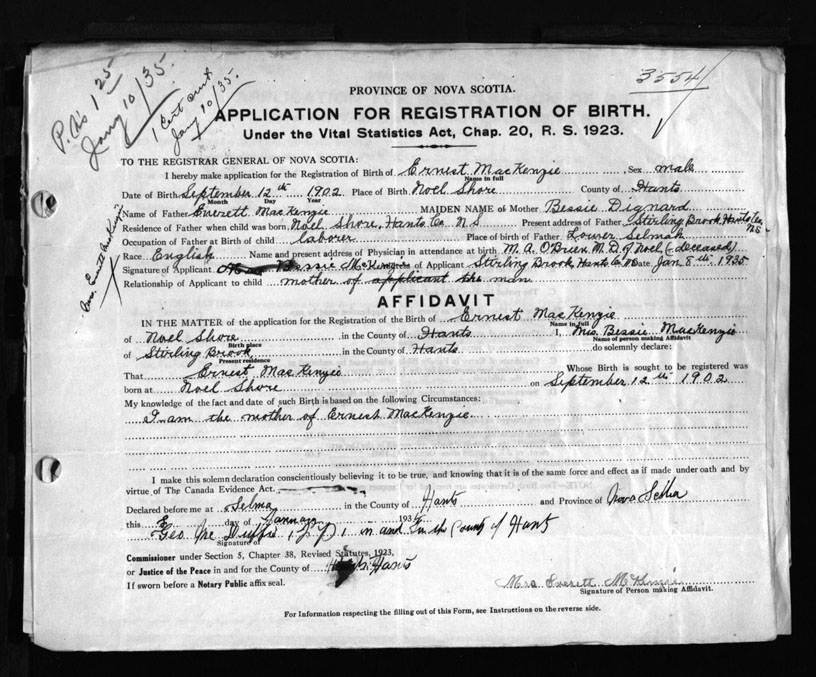 P. No 1 25
Jany 10/35.
1 Cert sent
Jany 10/35.
3554
PROVINCE OF NOVA SCOTIA.
APPLICATION FOR REGISTRATION OF BIRTH.
Under the Vital Statistics Act, Chap. 20, R. S. 1923.
TO THE REGISTRAR GENERAL OF NOVA SCOTIA:
I hereby make application for the Registration of Birth of Ernest MacKenzie, Sex male
Name in full
Date of Birth September 12th 1902 Place of Birth Noel Shore County of Hants
Month Day Year
Name of Father Everett MacKenzie MAIDEN NAME of Mother Bessie Dignard
Residence of Father when child was born Noel Shore, Hants Co. N S Present address of Father Stirling Brook, Hants Co. NS
Occupation of Father at Birth of child laborer Place of birth of Father Lower Selmah
Race English Name and present address of Physician in attendance at birth M. A. O'Brien M. D. of Noel (deceased)
Signature of Applicant Bessie McKenzie of Applicant Stirling Brook, Hants Co. NS Date Jan 8th. 1935
Relationship of Applicant to child mother of applicant the man
Mrs. Everett MacKenzie
AFFIDAVIT
IN THE MATTER of the application for the Registration of the Birth of Ernest MacKenzie
Name in full
of Noel Shore in the County of Hants I, Mrs. Bessie MacKenzie
Birth place Name of person making Affidavit
of Stirling Brook in the County of Hants do solemnly declare:
Present residence
That Ernest MacKenzie Whose Birth is sought to be registered was
born at Noel Shore on September 12th 1902
My knowledge of the fact and date of such Birth is based on the following Circumstances:
I am the mother of Ernest MacKenzie.
I make this solemn declaration conscientiously believing it to be true, and knowing that it is of the same force and effect as if made under oath and by
virtue of The Canada Evidence Act.
Declared before me at Selma in the County of Hants and Province of Nova Scotia
this 8 day of January 1935
Geo Mc Duffie, J. P. in and for the County of Hants
Signature of
Commissioner under Section 5, Chapter 38, Revised Statutes, 1923,
or Justice of the Peace in and for the County of Hants
If sworn before a Notary Public affix seal.
Mrs Everett McKenzie
Signature of Person making Affidavit.
For Information respecting the filling out of this Form, see Instructions on the reverse side.